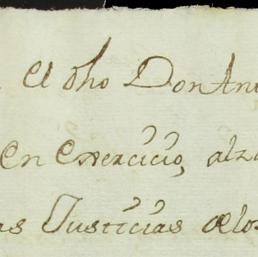 El dho Don Ant
En Exercicio, alza
as Justicias delos